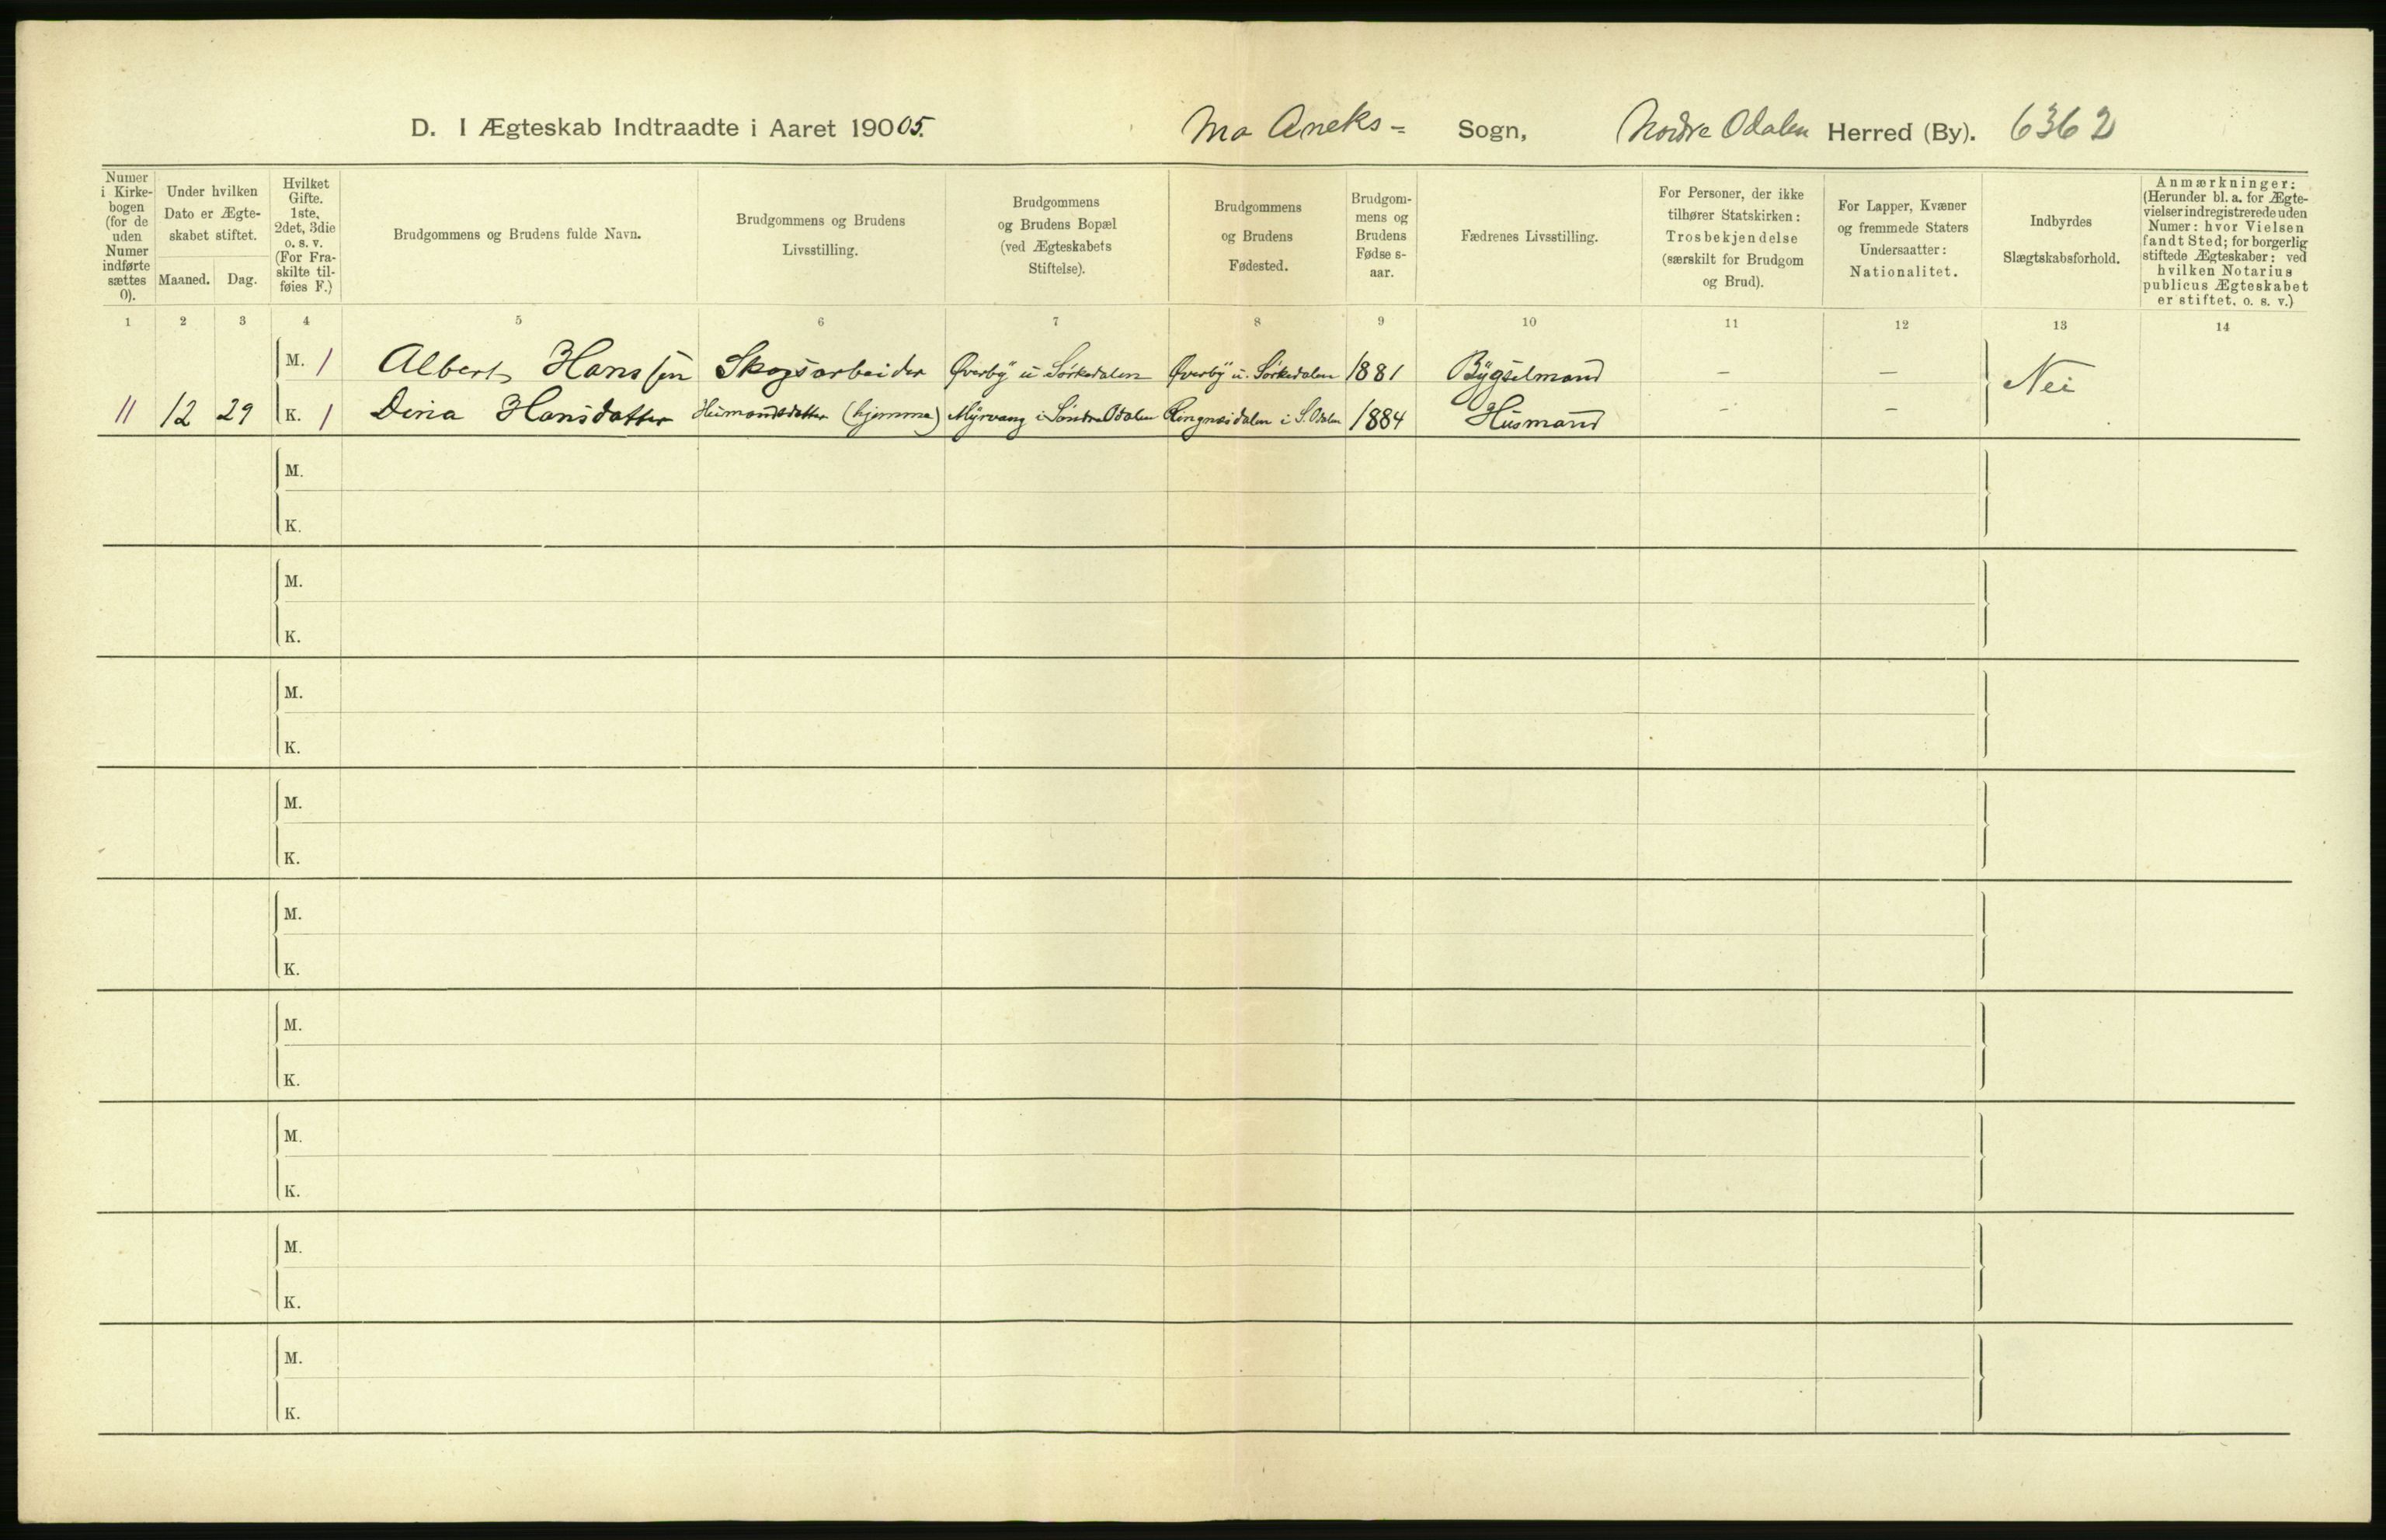 D. I Ægteskab Indtraadte i Aaret 19005. Mo Aneks= Sogn, Nordre Odalen Herred (By). 6362
Numer i Kirkebogen (for de uden Numer indførte sættes 0).
Under hvilken Dato er Ægteskabet stiftet.
Maaned. Dag.
Hvilket Gifte. 1ste, 2det, 3die o. s. v. (For Fraskilte tilføies F.)
Brudgommens og Brudens fulde Navn.
Brudgommens og Brudens Livsstilling.
Brudgommens og Brudens Bopæl (ved Ægteskabets Stiftelse).
Brudgommens og Brudens Fødested.
Brudgommens og Brudens Fødse s-aar.
Fædrenes Livsstilling.
For Personer, der ikke tilhører Statskirken: Trosbekjendelse (særskilt for Brudgom og Brud).
For Lapper, Kvæner og fremmede Staters Undersaatter: Nationalitet.
Indbyrdes Slægtskabsforhold.
Anmærkninger: (Herunder bl. a. for Ægtevielser indregistrerede uden Numer: hvor Vielsen fandt Sted; for borgerlig stiftede Ægteskaber: ved hvilken Notarius publicus Ægteskabet er stiftet. o. s. v.)
1 2 3 4 5 6 7 8 9 10 11 12 13 14
M. 1 Albert Hanssen Skogsarbeider Øverby u. Sørkedalen Øverby u. Sørkedalen 1881 Bygselmand — — Nei
11 12 29 K. 1 Dina Hansdatter Husmandsdatter (hjemme) Myrvang i Søndre Odalen i S. Odalen 1884 Husmand — —
M.
K.
M.
K.
M.
K.
M.
K.
M.
K.
M.
K.
M.
K.
M.
K.
M.
K.